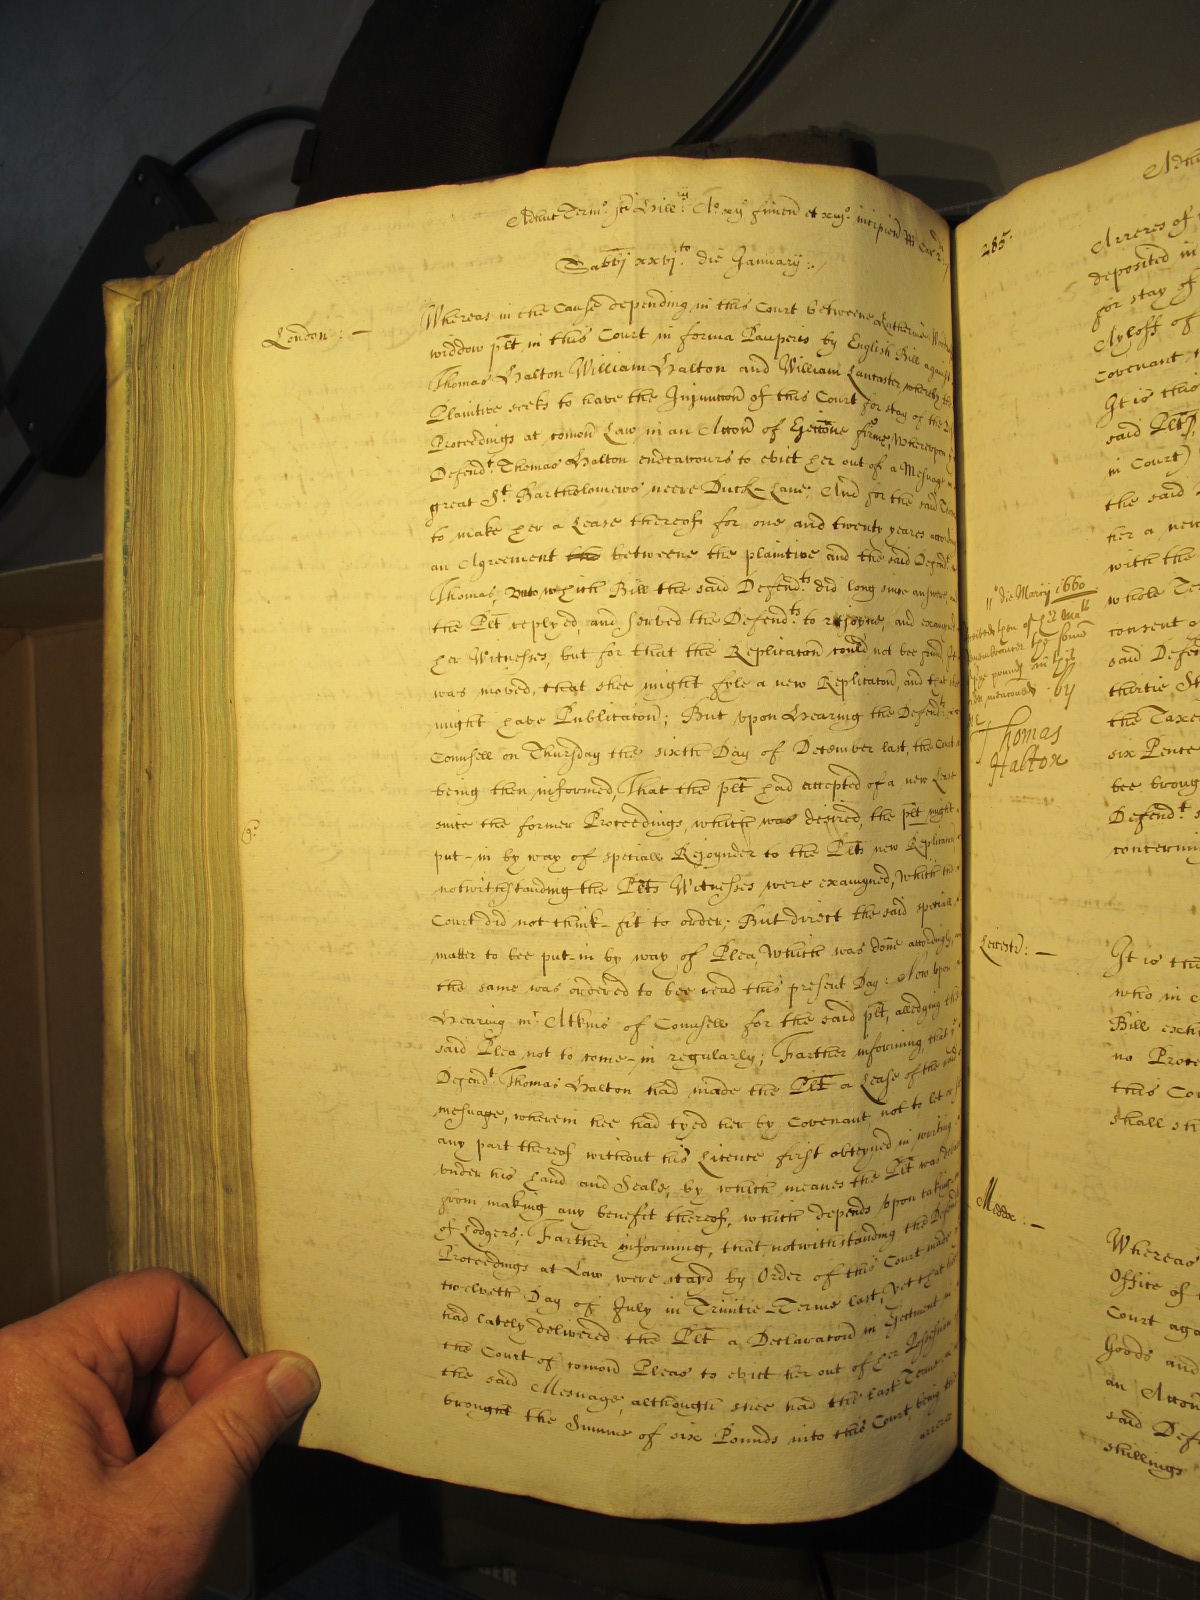 Adhuc Term.o sci Hill.ij A.o xij finien et xiij.o incipien
Sabbi xxvj.to die January :
London : —
Whereas in the Cause depending in this Court betweene Katherine
widdow plt in this Court in forma Pauperis by English Bill against
Thomas Halton William Halton and William Lancaster, whereby the
Plaintive seeks to have the Injunction of this Court for stay of the
Proceedings at comon Law in an Accon of Eieccone firme, whereupon
Defend.t Thomas Halton endeavours to evict her out of a Mesuage in
great S.t Bartholomews neere Duck-Lane; And for the said
to make her a Lease thereof for one and twenty yeares according
an Agreement betweene the plaintive and the said Defend.t
Thomas, Unto which Bill the said Defend.ts did long since answere,
the Plt replyed, and served the Defend.ts to rejoyne, and examined
her Witnesses, but for that the Replicacon could not bee found, It
was moved, that shee might fyle a new Replicacon, and that shee
might have Publicacon; But upon Hearing the Defend.ts
Counsell on Thursday the sixth Day of December last, the Court
being then informed, That the plt had accepted of a new Lease
since the former Proceedings, which was desired, the plt might
put-in by way of speciall Rejoynder to the Plts new Replicacon
notwithstanding the Plts Witnesses were examyned, which the
Court did not think-fit to order; But direct the said speciall
matter to bee put-in by way of Plea, Which was done accordingly,
the same was ordered to bee read this present Day: Now upon
Hearing m.r Atkins of Counsell for the said plt, alledging the
said Plea not to come-in regularly; Farther informing, that
Defend.t Thomas Halton had made the Plt a Lease of the said
mesuage, wherein hee had tyed her by Covenant, not to let
any part thereof without his Licence first obteyned in writing
under his Hand and Seale, by which meanes the Plt was
from making any benefit thereof, which depends upon taking
of Lodgers; Farther informing, that notwithstanding the Defend
Proceedings at Law were stayd by Order of this Court made
twelveth Day of July in Trinitie-Terme last, yet that
had lately delivered the Plt a Declaracon in Eiectment in
the Court of comon Pleas to evict her out of her Possession
the said Mesuage, although shee had the last Terme
brought the Summe of six Pounds into this Court, being the
arreres
285.
Adhuc
Arreres of
deposited in
for stay of
Ayloff of
Covenant
It is this
said Plt
in Court)
the said
her a new
with the
whole Ter
consent o
said Defe
thirtie S
the Taxe
six Pence
bee broug
Defend.t s
concerning
11.o die Marcij 1660
by
Thomas
Halton
Leicestr : —
It is th
who in
Bill
no Proce
this Cou
shall st
Middx : —
Whereas
Office of
Court aga
Goods and
an Accon
said Def
shillings